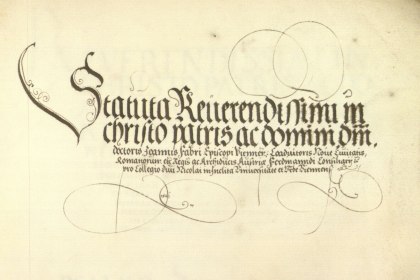 Statuta Reverendissimi in
christo patris ac domini dm̄.
doctoris Joannis Fabri Episcopi Vienneñ. Coadiutoris Noue Ciuitatis,
Romanorum etc Regis ac Archiducis Austrie Ferdinandi Consiliarij
pro Collegio diui Nicolai in Inclita Vniuersitate et Vrbe Viennensi